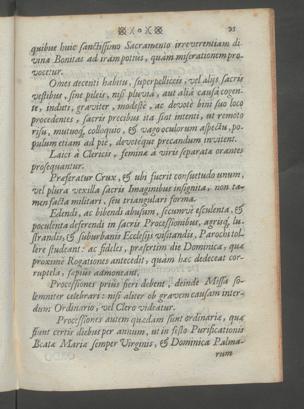 21
quibus huic sanctissimo Sacramento irreverentiam di
vina Bonitas ad iram potius, quam miserationem pro-
vocetur.
Omes decenti habitu, superpelliceis, vel alijs sacris
vestibus, sine pileis, nisi pluvia, aut alia causa cogen-
te, induti, graviter, modestè, ac devotè bini suo loco
procedentes, sacris precibus ita sint intenti, ut remoto
risu, mutuoq; colloquio, & vago oculorum aspectu, po-
pulum etiam ad piè, devotèque precandum invitent.
Laici à Clericis, feminæ à viris separata orantes
prosequantur.
Præferatur Crux, & ubi fuerit consuetudo unum,
vel plura vexilla sacris Imaginibus insignita, non ta-
men facta militari, seu triangulari forma.
Edendi, ac bibendi abusum, secumve esculenta, &
poculenta deferendi in sacris Processionibus, agrisq; lu-
strandis & suburbanis Ecclesijs visitandis, Parochi tol-
lere studeant: ac fideles, præsertim die Dominica, quæ
proximè Rogationes antecedit, quam hæc dedeceat cor-
ruptela, sæpius admoneant.
Processiones prius fieri debent, deinde Missa so-
lemniter celebrari: nisi aliter ob gravem causam inter-
dum Ordinario, vel Clero videatur.
Processiones autem quædam sunt ordinariæ, quæ
fiunt certis diebus per annum, ut in festo Purificationis
Beatæ Mariæ semper Virginis, & Dominica Palma-
rum